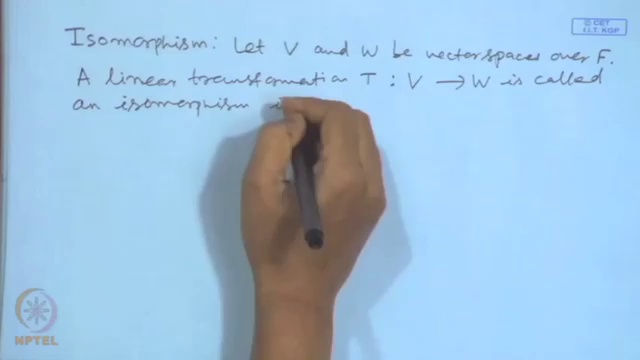 © CET
I.I.T. KGP
Isomorphism: Let V and W be vector spaces over F.
A linear transformation T : V → W is called
an isomorphism i
NPTEL